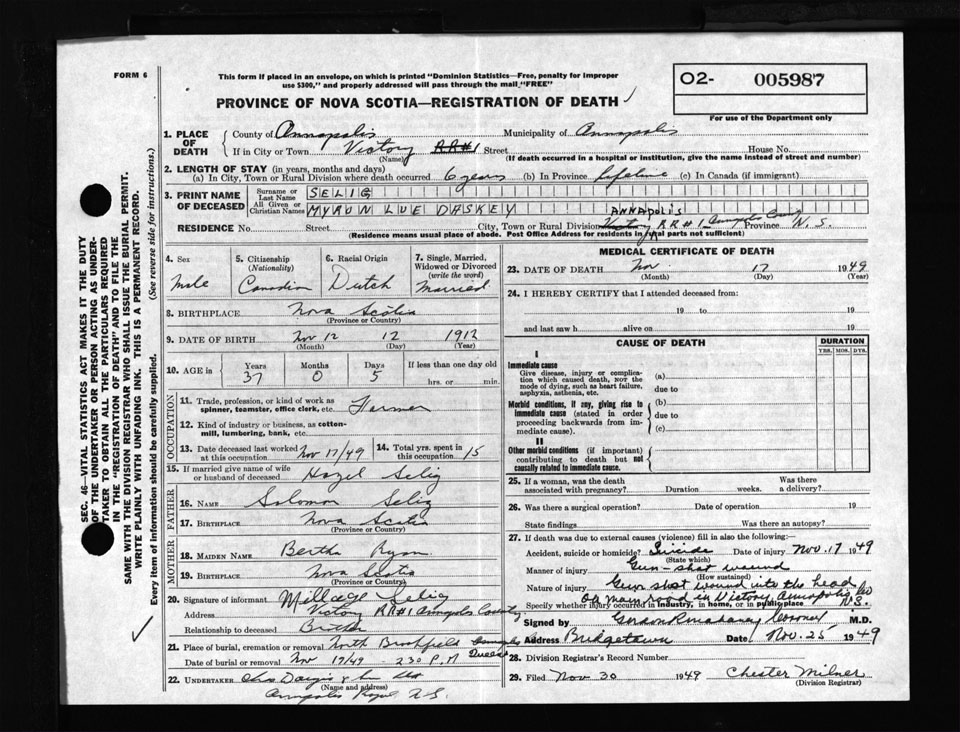 FORM 6
This form if placed in an envelope, on which is printed "Dominion Statistics—Free, penalty for improper
use $300," and properly addressed will pass through the mail "FREE"
O2- 005987
For use of the Department only
PROVINCE OF NOVA SCOTIA—REGISTRATION OF DEATH
1. PLACE OF DEATH
County of Annapolis Municipality of Annapolis
If in City or Town Victory RR#1 Street House No.
(Name) (If death occurred in a hospital or institution, give the name instead of street and number)
2. LENGTH OF STAY (in years, months and days)
(a) In City, Town or Rural Division where death occurred 6 years (b) In Province lifetime (c) In Canada (if immigrant)
3. PRINT NAME OF DECEASED
Surname or Last Name SELIG
All Given or Christian Names MYRON LUE DASKEY
ANNAPOLIS
RESIDENCE No. Street City, Town or Rural Division Victory RR#1 Annapolis County Province N.S.
(Residence means usual place of abode. Post Office Address for residents in rural parts not sufficient)
4. Sex Male
5. Citizenship (Nationality) Canadian
6. Racial Origin Dutch
7. Single, Married, Widowed or Divorced (write the word) Married
8. BIRTHPLACE Nova Scotia
(Province or Country)
9. DATE OF BIRTH Nov 12 12 1912
(Month) (Day) (Year)
10. AGE in Years 37 Months 0 Days 5 If less than one day old hrs. or min.
OCCUPATION
11. Trade, profession, or kind of work as spinner, teamster, office clerk, etc. Farmer
12. Kind of industry or business, as cotton-mill, lumbering, bank, etc.
13. Date deceased last worked at this occupation Nov 17/49
14. Total yrs spent in this occupation 15
15. If married give name of wife or husband of deceased Hazel Selig
FATHER
16. NAME Solomon Selig
17. BIRTHPLACE Nova Scotia
(Province or Country)
MOTHER
18. MAIDEN NAME Bertha Ryan
19. BIRTHPLACE Nova Scotia
(Province or Country)
20. Signature of informant Millage Selig
Address Victory RR#1 Annapolis County
Relationship to deceased Brother
21. Place of burial, cremation or removal North Brookfield Queens
Date of burial or removal Nov 19/49 - 2 30 P.M
22. UNDERTAKER
(Name and address)
Annapolis Royal N.S.
MEDICAL CERTIFICATE OF DEATH
23. DATE OF DEATH Nov. 17 1949
(Month) (Day) (Year)
24. I HEREBY CERTIFY that I attended deceased from:
19 to 19
and last saw h alive on 19
CAUSE OF DEATH
DURATION
YRS. MOS. DYS.
I
Immediate cause
Give disease, injury or complication which caused death, not the mode of dying, such as heart failure, asphyxia, asthenia, etc.
(a)
due to
Morbid conditions, if any, giving rise to immediate cause (stated in order proceeding backwards from immediate cause).
(b)
due to
(c)
II
Other morbid conditions (if important) contributing to death but not causally related to immediate cause.
25. If a woman, was the death associated with pregnancy? Duration weeks. Was there a delivery?
26. Was there a surgical operation? Date of operation 19
State findings Was there an autopsy?
27. If death was due to external causes (violence) fill in also the following:—
Accident, suicide or homicide? Suicide Date of injury Nov. 17 1949
(State which)
Manner of injury Gun-shot wound
(How sustained)
Nature of injury Gun shot wound into the head
on main road in Victory Annapolis Co
Specify whether injury occurred in industry, in home, or in public place N.S.
Signed by Coroner M.D.
Address Bridgetown Date Nov. 25 1949
28. Division Registrar's Record Number
29. Filed Nov 30 1949 Chester Milner
(Division Registrar)
SEC. 46—VITAL STATISTICS ACT MAKES IT THE DUTY
OF THE UNDERTAKER OR PERSON ACTING AS UNDER-
TAKER TO OBTAIN ALL THE PARTICULARS REQUIRED
IN THE "REGISTRATION OF DEATH" AND TO FILE THE
SAME WITH THE DIVISION REGISTRAR WHO SHALL ISSUE THE BURIAL PERMIT.
WRITE PLAINLY WITH UNFADING INK. THIS IS A PERMANENT RECORD.
Every item of information should be carefully supplied. (See reverse side for instructions.)